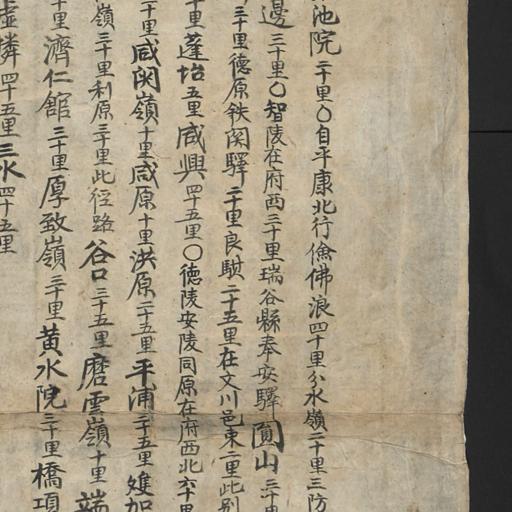 池院二十里〇自平康北行儉佛浪四十里分水嶺二十里三防
邊三十里〇智陵在府西三十里瑞谷縣奉安驛圓山三十里
三十里德原鉄関驛二十里良驥二十五里在文川邑東二里此别
十里蓬坮五里咸興四十五里〇德陵安陵同原在府西北六十里
三十里咸関嶺十里咸原十里洪原二十五里平浦二十五里雙加
嶺三十里利原三十里此径路谷口三十五里磨雲嶺十里端
十里濟仁舘三十里厚致嶺三十里黄水院三十里橋項
虛憐四十五里三水四十五里